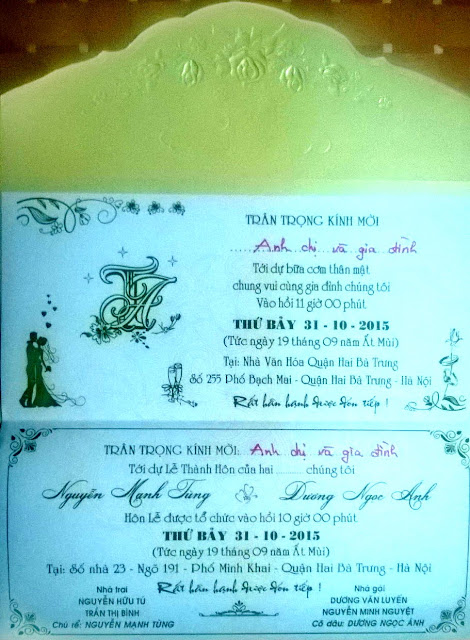 TRÂN TRỌNG KÍNH MỜI
Anh chị và gia đình
Tới dự bữa cơm thân mật
chung vui cùng gia đình chúng tôi
Vào hồi 11 giờ 00 phút
THỨ BẢY 31 - 10 - 2015
(Tức ngày 19 tháng 09 năm Ất Mùi)
Tại: Nhà Văn Hóa Quận Hai Bà Trưng
Số 255 Phố Bạch Mai - Quận Hai Bà Trưng - Hà Nội
Rất hân hạnh được đón tiếp !
TA
TRÂN TRỌNG KÍNH MỜI: Anh chị và gia đình
Tới dự Lễ Thành Hôn của hai ........... chúng tôi
Nguyễn Mạnh Tùng Dương Ngọc Anh
Hôn Lễ được tổ chức vào hồi 10 giờ 00 phút
THỨ BẢY 31 - 10 - 2015
(Tức ngày 19 tháng 09 năm Ất Mùi)
Tại: Số nhà 23 - Ngõ 191 - Phố Minh Khai - Quận Hai Bà Trưng - Hà Nội
Rất hân hạnh được đón tiếp !
Nhà trai
NGUYỄN HỮU TÚ
TRẦN THỊ BÌNH
Chú rể: NGUYỄN MẠNH TÙNG
Nhà gái
DƯƠNG VĂN LUYẾN
NGUYỄN MINH NGUYỆT
Cô dâu: DƯƠNG NGỌC ÁNH